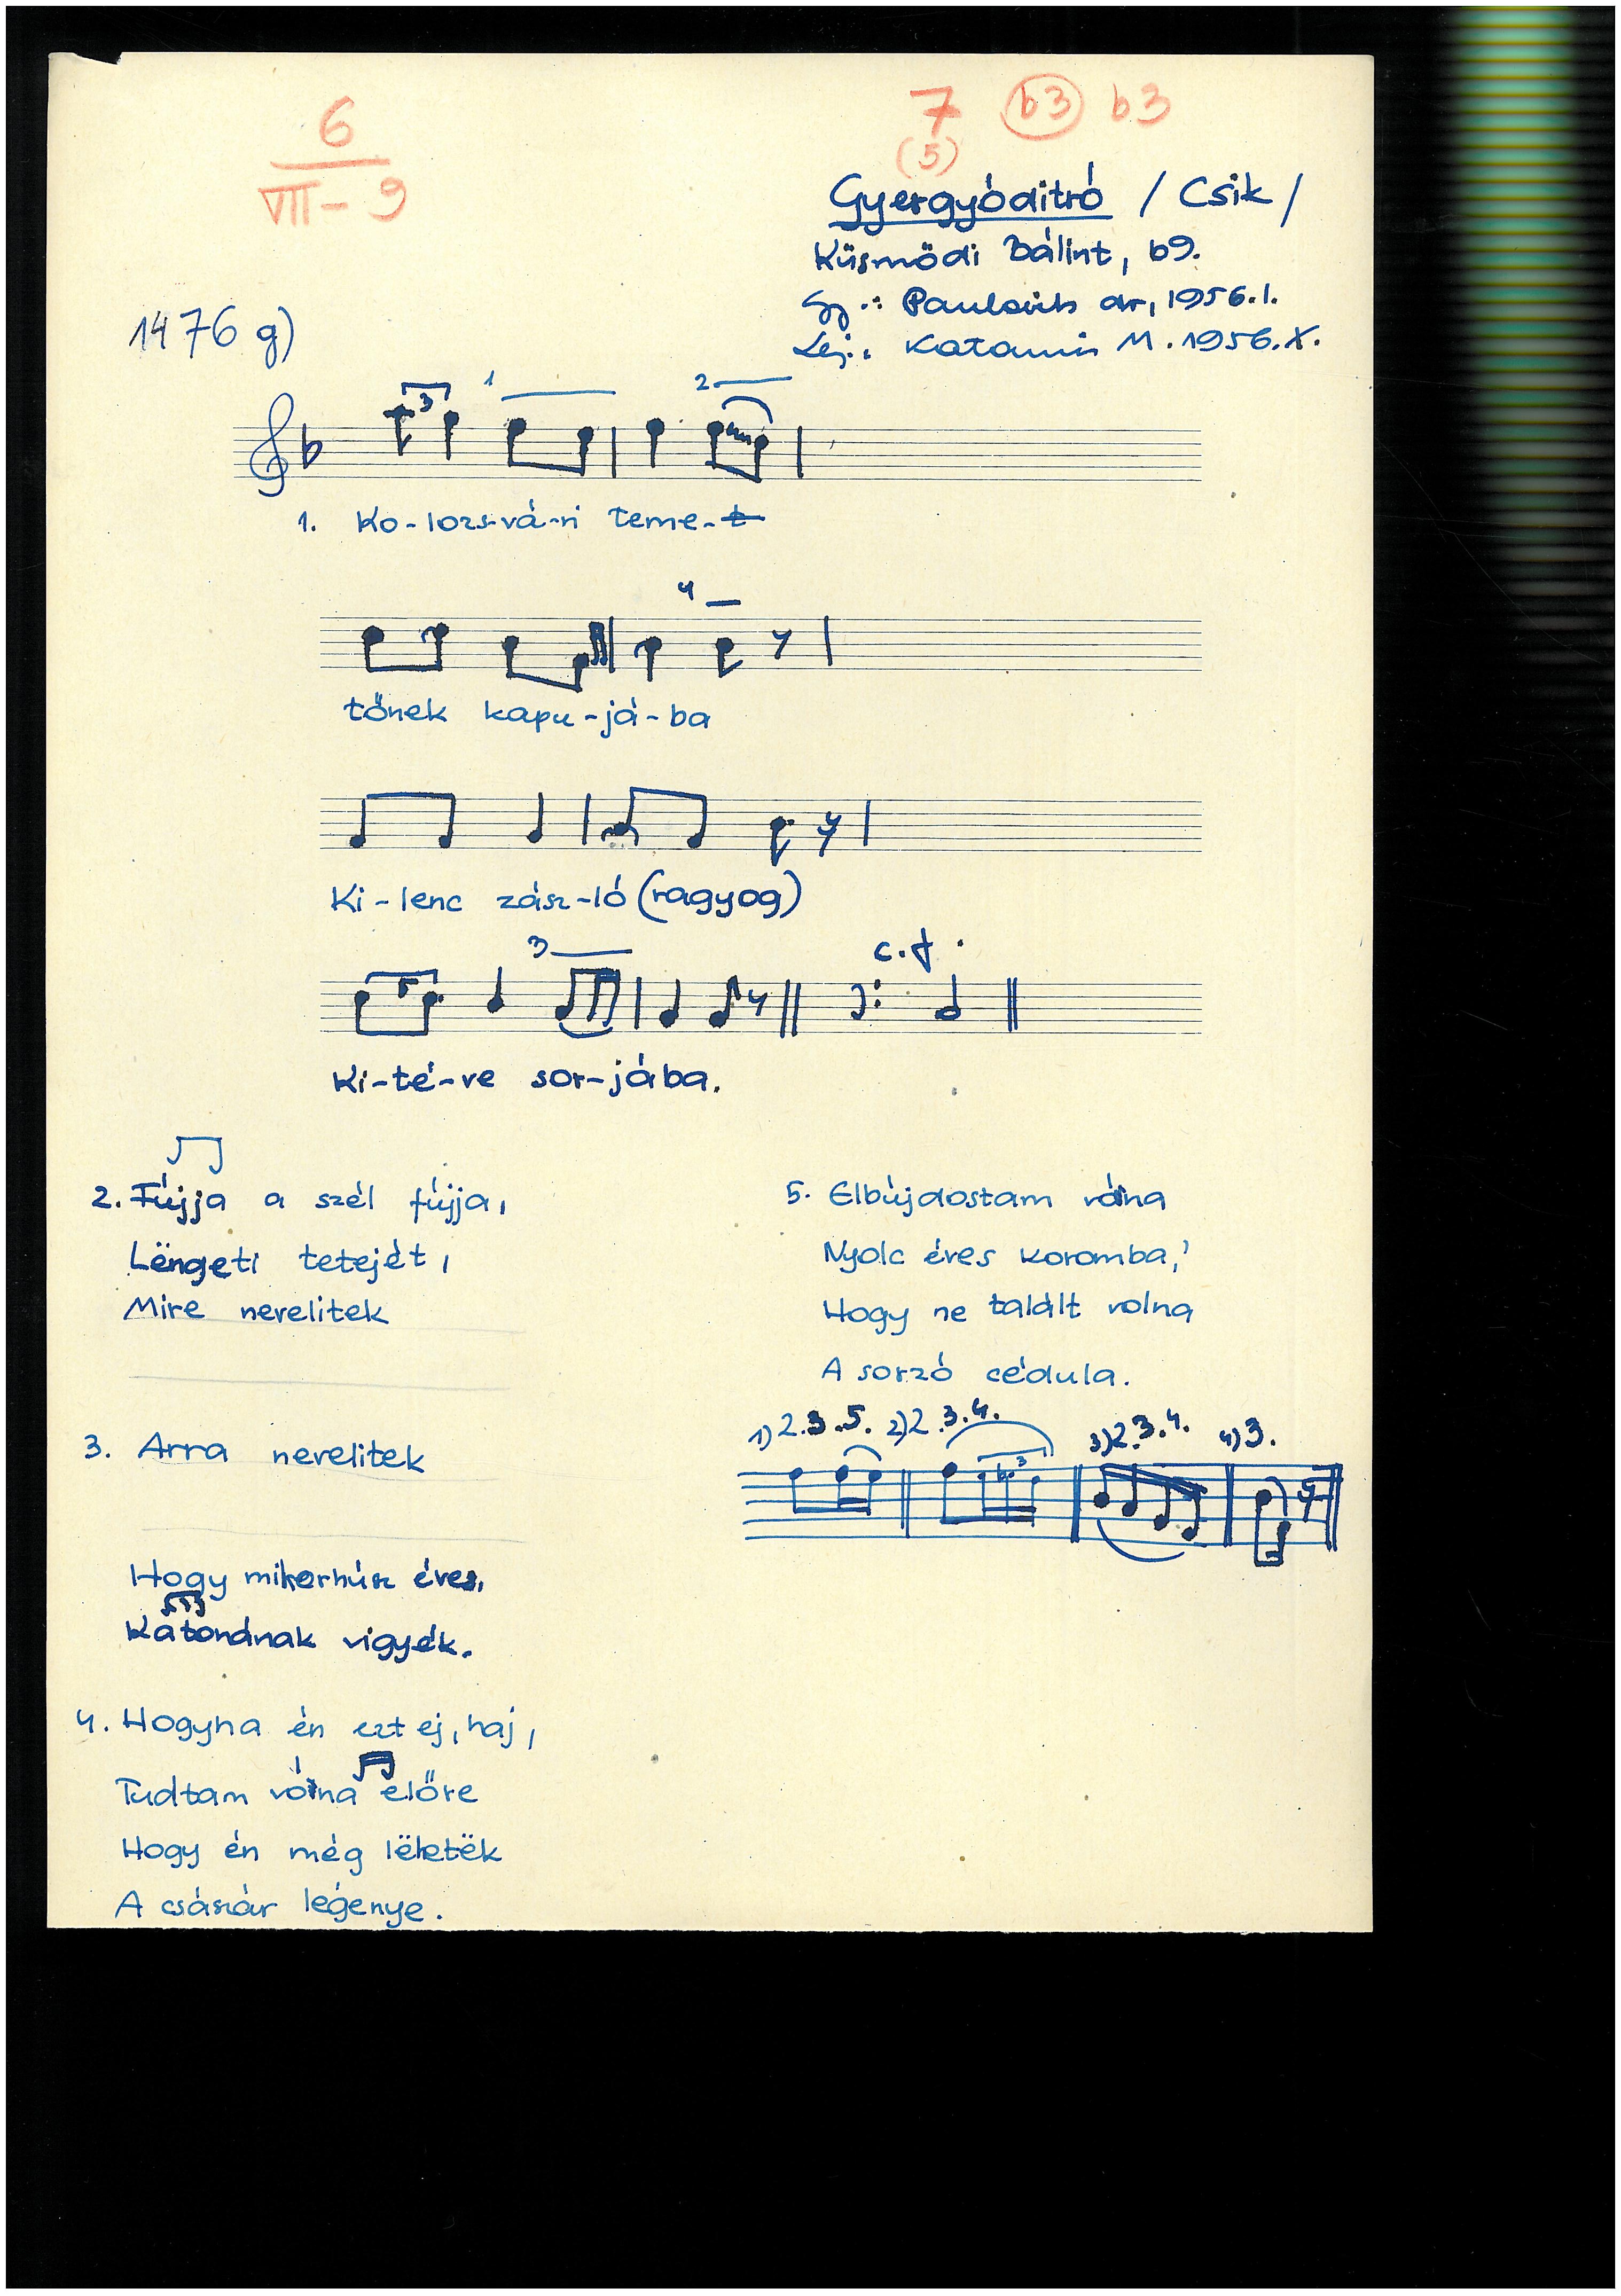 6
VII - 9
7 b3 b3
(5)
Gyergyóditró / Csik /
Küsmödi Bálint, 69.
Gy.: Paulovits dr, 1956.I.
Lej.: M. 1956.X.
1476 g)
3 1 2
1. Ko-lozs-vá-ri teme-t
4
tőnek kapu-já-ba
Ki-lenc zász-ló (ragyog)
3 c.f.
Ki-té-ve sor-jába.
2. Fújja a szél fújja,
Lëngeti tetejét,
Mire nevelitek
3. Arra nevelitek
Hogy mikor húsz éves,
Katonának vigyék.
4. Hogyha én ezt ej, haj,
Tudtam vóna előre
Hogy én még lëhetëk
A császár legénye.
5. Elbújdostam vóna
Nyolc éves koromba,
Hogy ne talált volna
A sorzó cédula.
1) 2.3.5. 2) 2.3.4. 3) 2.3.4. 4) 3.
3